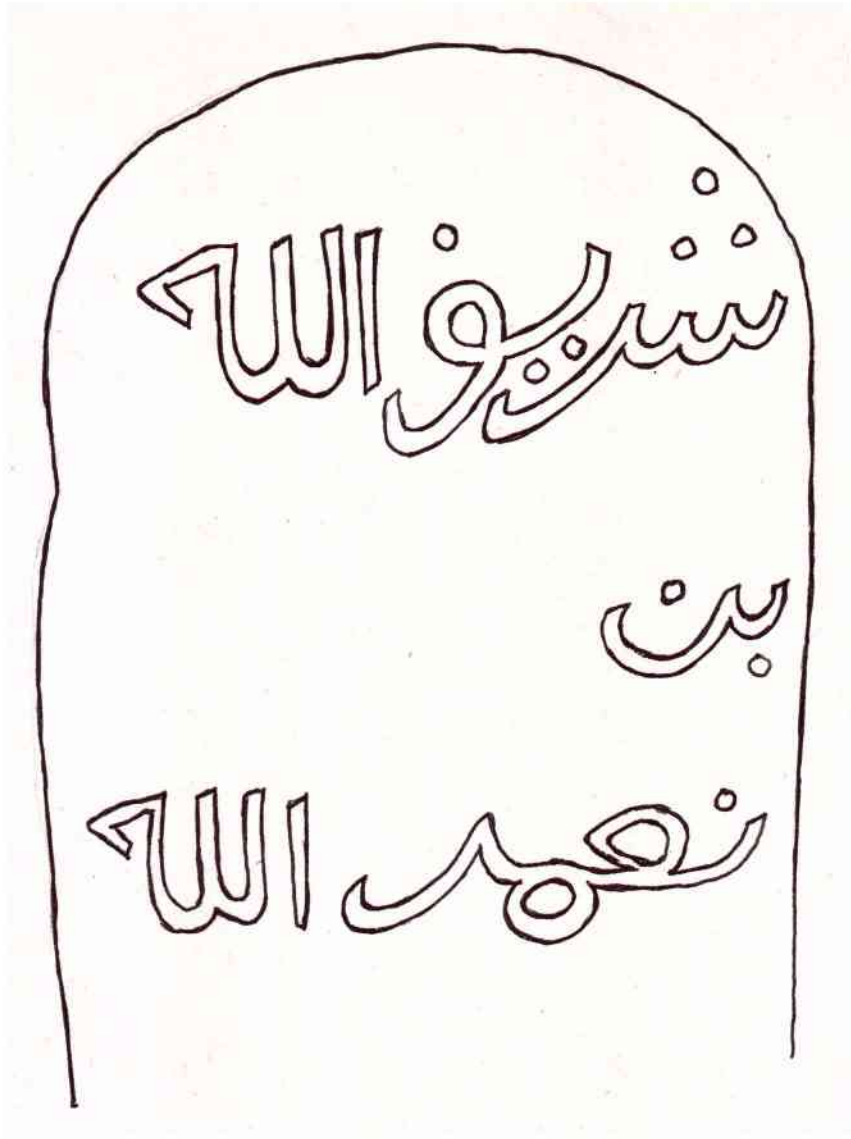 شريف الله
بن
نعمد الله